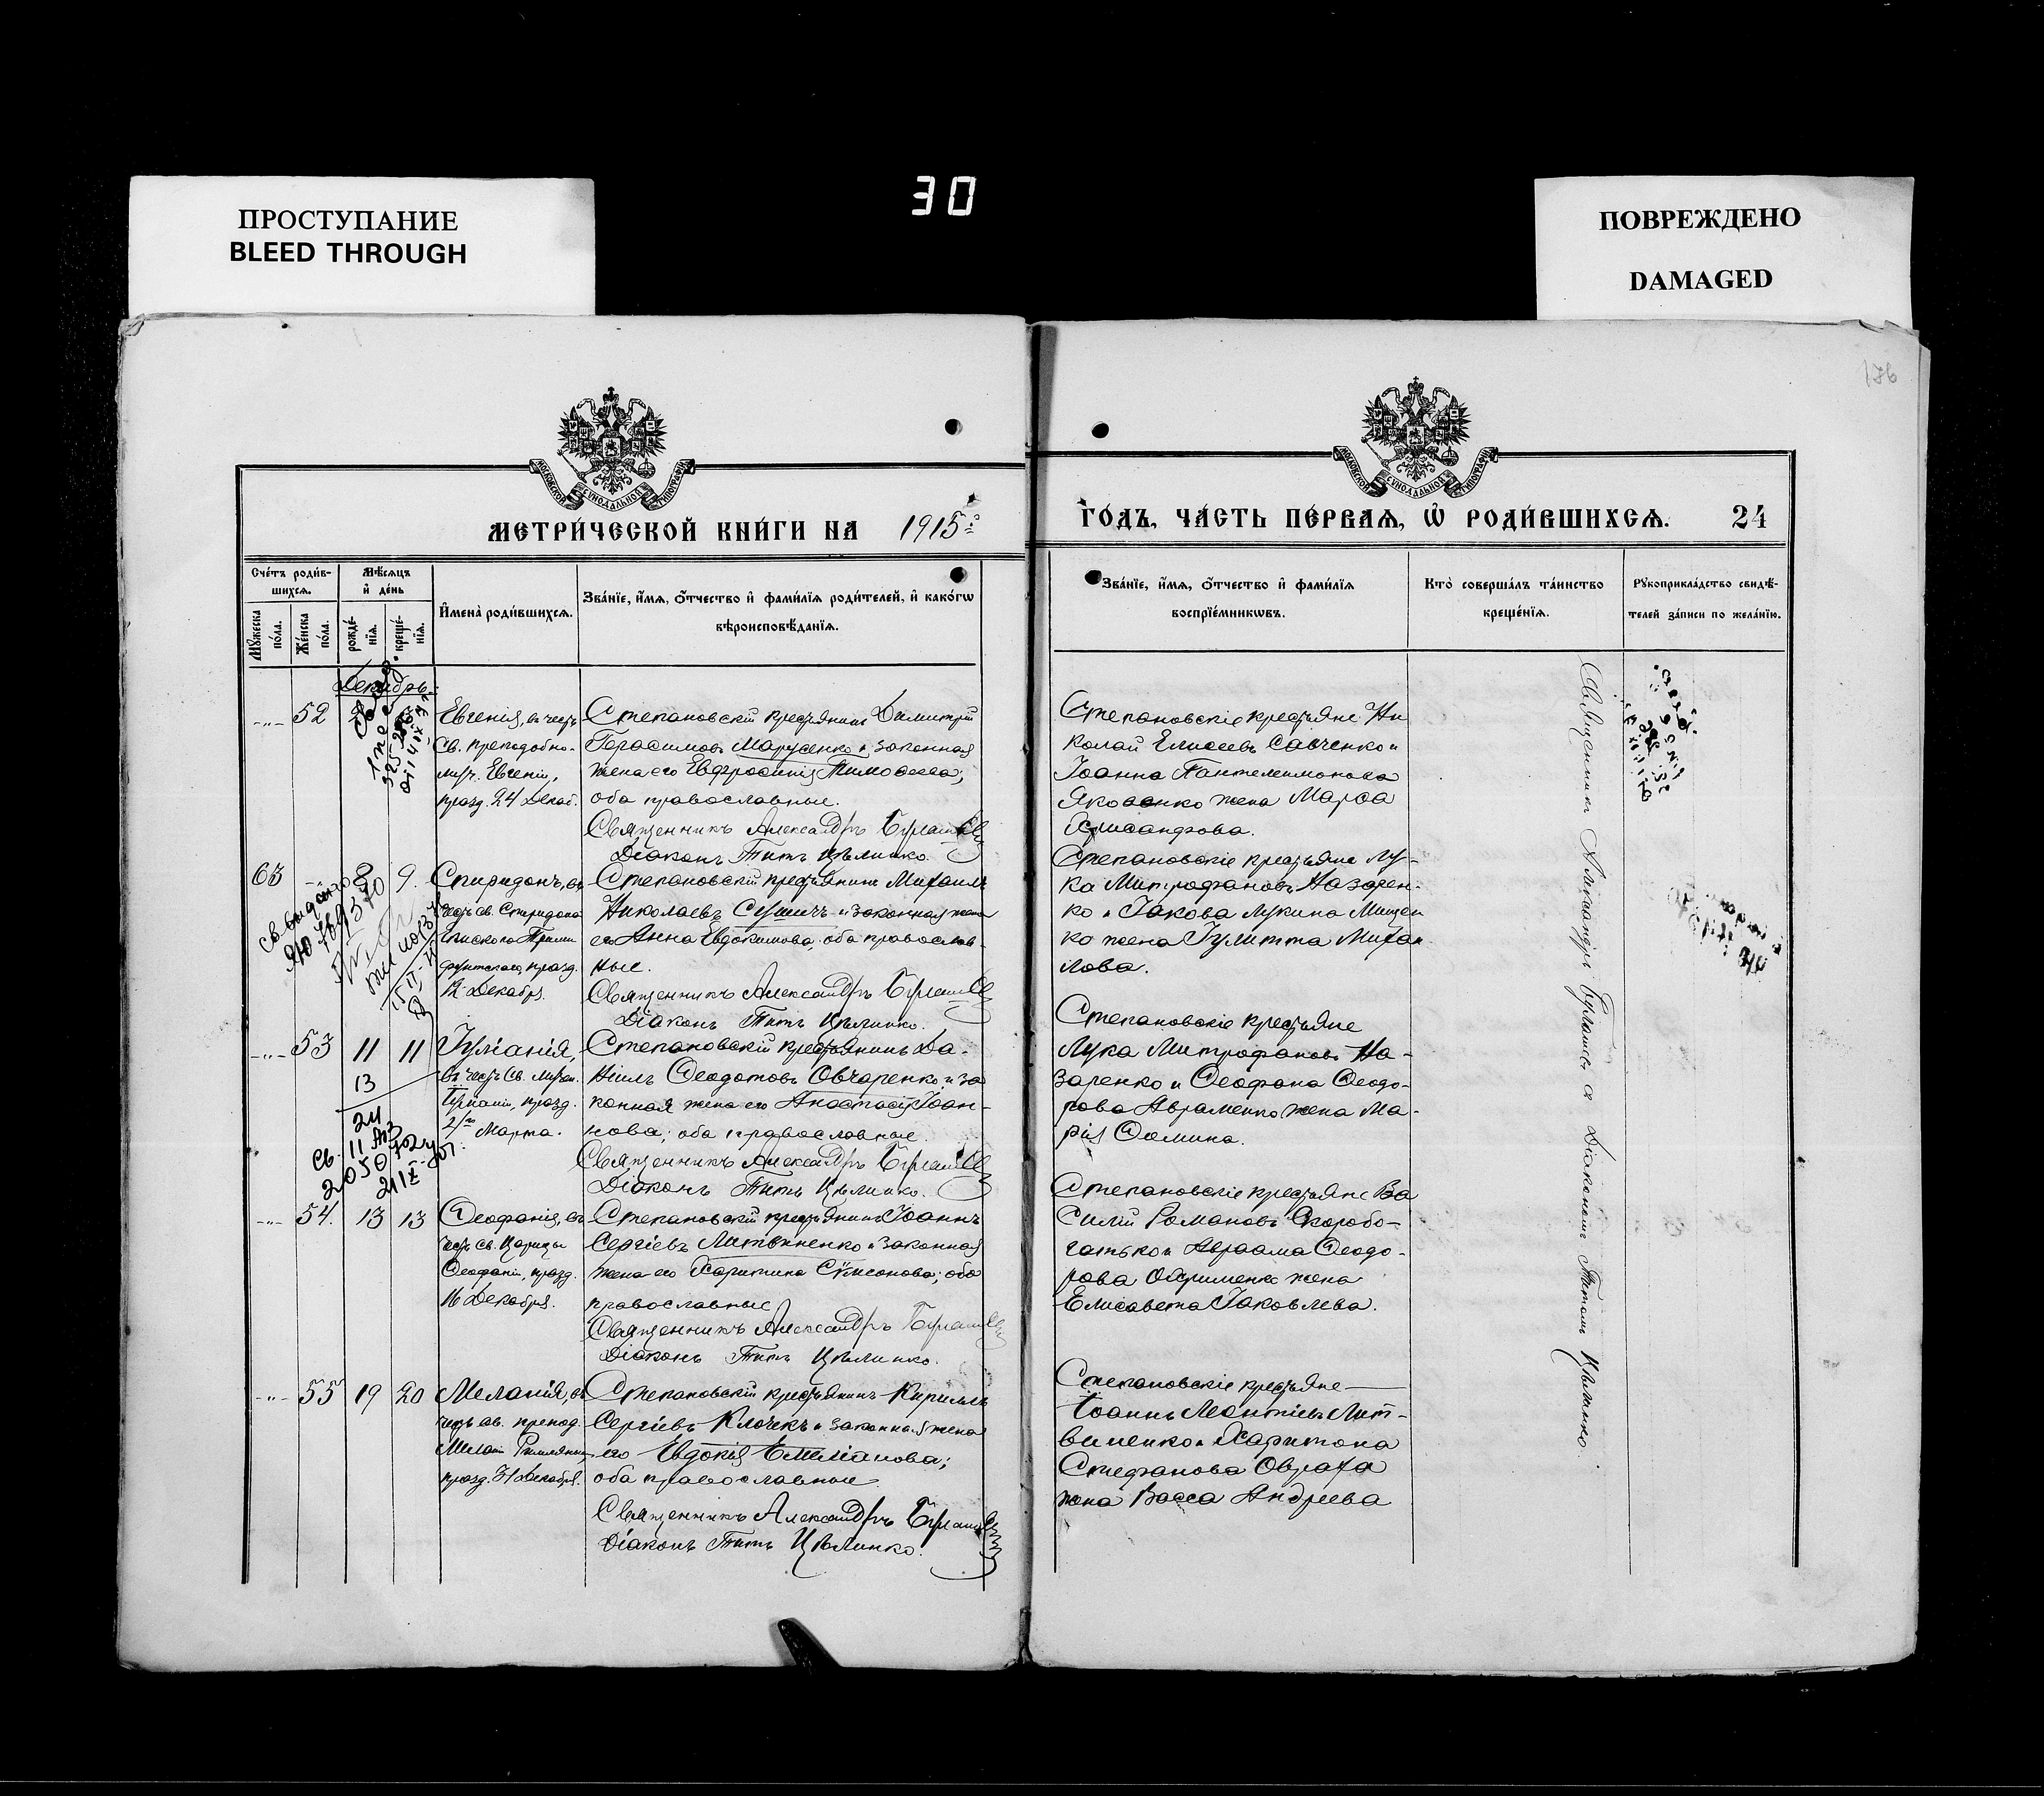 ПРОСТУПАНИЕ
BLEED THROUGH
30
ПОВРЕЖДЕНО
DAMAGED
176
МОСКОВСКОЙ СѴНОДАЛЬНОЙ ТИПОГРАФІИ
МЕТРИ́ЧЕСКОЙ КНИ́ГИ НА 1915
Счéтъ роди́в-
шихсѧ.
Мѣ́сѧцъ
и҆ де́нь
Мꙋ́жеска
по́ла.
Же́нска
по́ла.
рожде́-
нїѧ.
креще́-
нїѧ.
И҆мена̀ роди́вшихсѧ.
Зва́нїе, и҆́мѧ, ѻ҆́тчество и҆ фами́лїѧ роди́телей, и҆ како́гѡ
вѣроисповѣ́данїѧ.
Декабрь
52
Евгенія, въ честь
Св. преподобно-
муч. Евгеніи,
празд. 24 Декаб.
Степановскій крестьянинъ Димитрій
Герасимовъ Марусенко и законная
жена его Евфросинія Тимофеева;
оба православные.
Священникъ Александръ
Діаконъ Титъ Цѣлинко.
63 8 9.
Спиридонъ, въ
честь св. Спиридона
Епископа Трими
фунтскаго, празд.
12 Декабря.
Степановскій крестьянинъ Михаилъ
Николаевъ и законная жена
его Анна Евдокимова, оба православ-
ные.
Священникъ Александръ
Діаконъ Титъ Цѣлинко.
53 11 11
13
24
Іуліанія,
въ честь Св. Мучен.
Іуліаніи, празд.
Марта.
Степановскій крестьянинъ Да-
ніилъ Ѳеодотовъ Овчаренко и за
конная жена его Анастасія Іоан-
нова; оба православные.
Священникъ Александръ
Діаконъ Титъ Цѣлинко.
54. 13 13
Ѳеофанія, въ
честь св. Царицы
Ѳеофаніи, празд.
16 Декабря.
Степановскій крестьянинъ Іоаннъ
Сергіевъ Литвиненко и законная
жена его Харитина Сѵмеонова; оба
православные
Священникъ Александръ
Діаконъ Титъ Цѣлинко.
55 19 20
Меланія, въ
честь св. препод.
Меланіи Римлянын,
празд. 31 Декабря.
Степановскій крестьянинъ Кириллъ
Сергіевъ Клочекъ и законная жена
его Евдокія Емеліанова;
оба православные
Священникъ Александръ
Діаконъ Титъ Цѣлинко.
МОСКОВСКОЙ СѴНОДАЛЬНОЙ ТИПОГРАФІИ
ГО́ДЪ, ЧА́СТЬ ПЕ́РВАѦ, Ѡ҆ РОДИ́ВШИХСѦ. 24
Зва́нїе, и҆́мѧ, ѻ҆́тчество и҆ фами́лїѧ
воспрїе́мникѡвъ.
Кто̀ соверша́лъ та́инство
креще́нїѧ.
Рꙋкоприкла́дство свидѣ́-
телей за́писи по жела́нїю.
Степановскіе крестьяне Ни
колай Елисеевъ Савченко и
Іоанна Пантелеимонова
Яковенко жена Марѳа
Степановскіе крестьяне Лу-
ка Митрофановъ Назарен-
ко и Іакова Лукина Мищен
ко жена Іулитта Михаи
лова.
Степановскіе крестьяне
Лука Митрофановъ На-
заренко и Ѳеофана Ѳеодо-
рова Авраменко жена Ма-
рія Ѳомина.
Степановскіе крестьяне Ва
силій Романовъ Скоробо-
гатько и Авраама Ѳеодо-
рова жена
Елисавета Іаковлева.
Степановскіе крестьяне
Іоаннъ Леонтіевъ Лит-
виненко и Харитона
Стефанова Овраха
жена Васса Андреева
Священникъ Александръ съ Діакономъ Титомъ Цѣлинко.